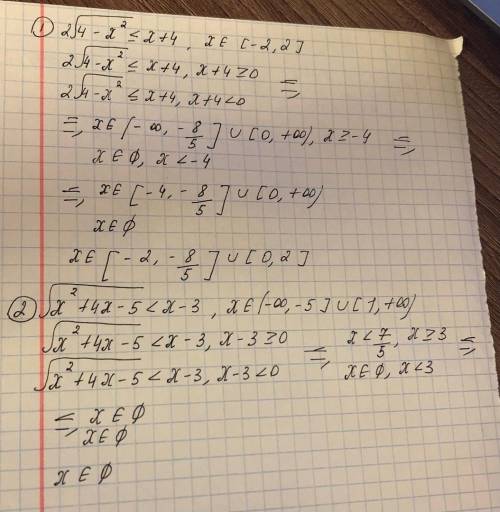 ① 2√(4-x²) ≤ x+4, x∈[-2,2]
2√(4-x²) ≤ x+4, x+4≥0
2√(4-x²) ≤ x+4, x+4<0 =,
=, x∈[-∞, -8/5]∪[0,+∞), x≥-4 =,
x∈∅, x<-4
=, x∈[-4, -8/5]∪[0,+∞)
x∈∅
x∈[-2, -8/5]∪[0,2]
② √(x²+4x-5) < x-3, x∈(-∞,-5]∪[1,+∞)
√(x²+4x-5) < x-3, x-3≥0
√(x²+4x-5) < x-3, x-3<0
=, x<7/5, x≥3 =,
x∈∅, x<3
=, x∈∅
x∈∅
x∈∅